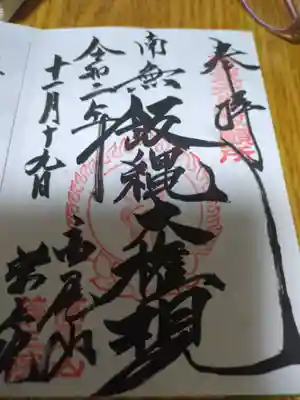 奉拝
南無飯縄大権現
令和二年
十一月十九日
高尾山
薬王院